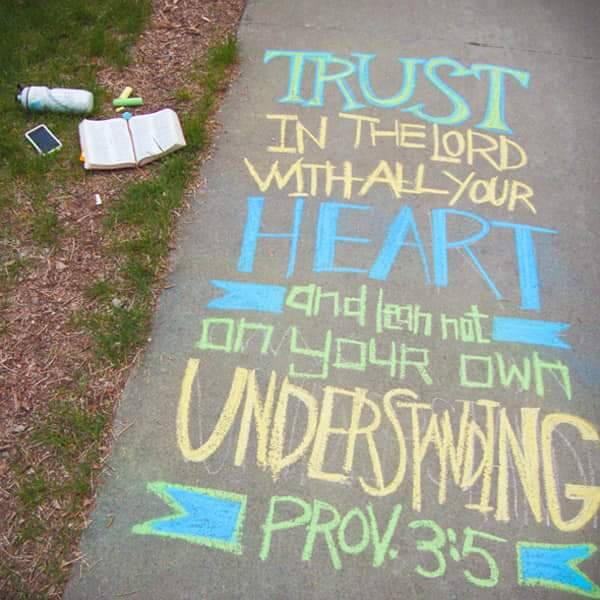 TRUST
IN THE LORD
WITH ALL YOUR
HEART
and lean not
on your own
UNDERSTANDING
PROV. 3:5